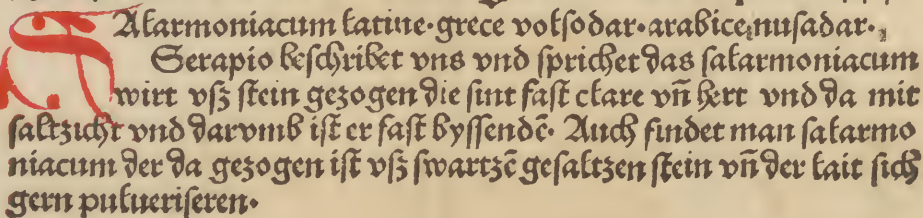 SAlarmoniacum latine·grece volfodar·arabice nusadar·
Serapio beschribet vns vnd sprichet das salarmoniacum
wirt vsz stein gezogen die sint fast clare vn̄ hert vnd da mit
saltzicht vnd darvmb ist er fast byssendē· Auch findet man salarmo
niacum der da gezogen ist vsz swartzē gesaltzen stein vn̄ der lait sich
gern pulueriseren·